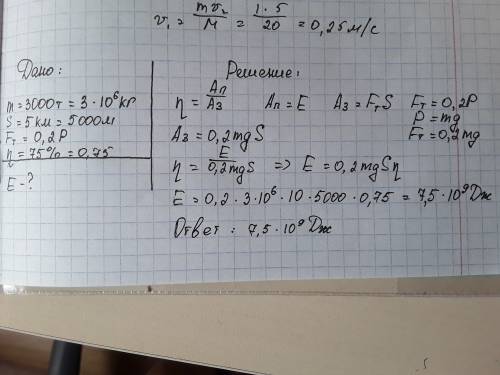 v₁ = mv₂/M = 1·5/20 = 0,25 м/с
Дано:
m = 3000т = 3·10⁶кг
S = 5км = 5000м
Fт = 0,2P
η = 75% = 0,75
E - ?
Решение:
η = Aп/Aз Aп = E Aз = FтS Fт = 0,2P
P = mg
Aз = 0,2mgS Fт = 0,2mg
η = E/0,2mgS => E = 0,2mgSη
E = 0,2·3·10⁶·10·5000·0,75 = 7,5·10⁹Дж
Ответ: 7,5·10⁹Дж